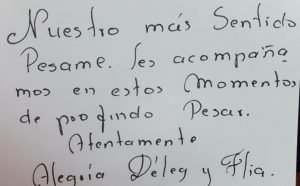 Nuestro más Sentido
Pesame. les acompaña
mos en estos momentos
de profindo Pesar.
Atentamente
Alegría Déleg y Flia.